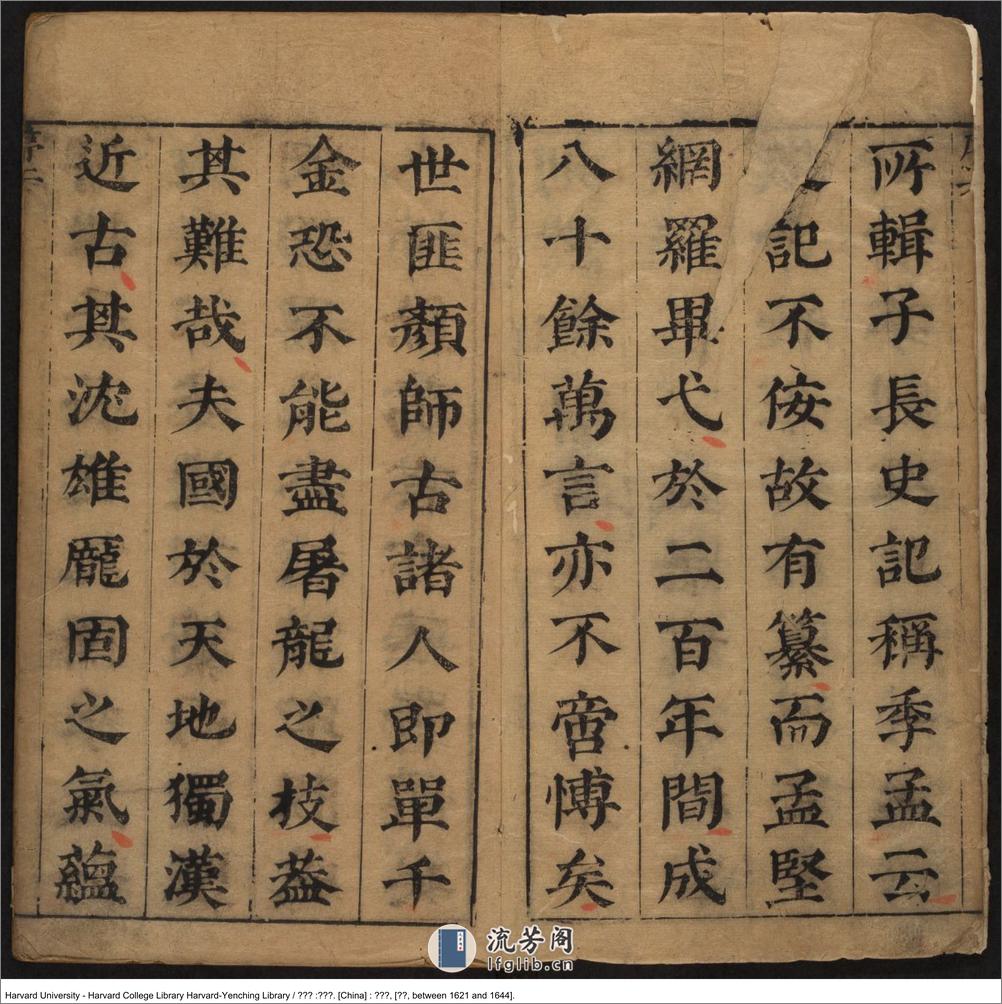 所輯子長史記稱季孟云
記不侫故有纂而孟堅
網羅畢弋於二百年間成
八十餘萬言亦不啻愽矣
世匪顏師古諸人即單千
金恐不能盡屠龍之技葢
其難哉夫國於天地獨漢
近古其沈雄龐固之氣蘊
流芳阁
lfglib.cn
Harvard University - Harvard College Library Harvard-Yenching Library / ??? :???. [China] : ???, [??, between 1621 and 1644].